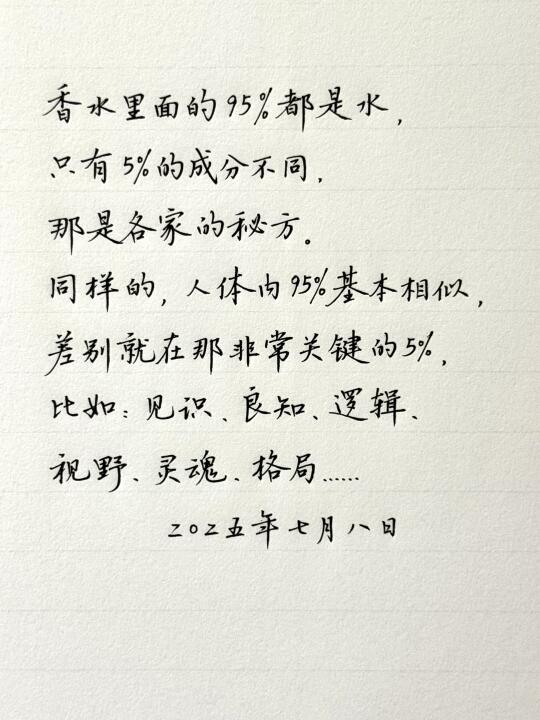 香水里面的95%都是水,
只有5%的成分不同,
那是各家的秘方。
同样的,人体内95%基本相似,
差别就在那非常关键的5%,
比如:见识、良知、逻辑、
视野、灵魂、格局……
二〇二五年七月八日